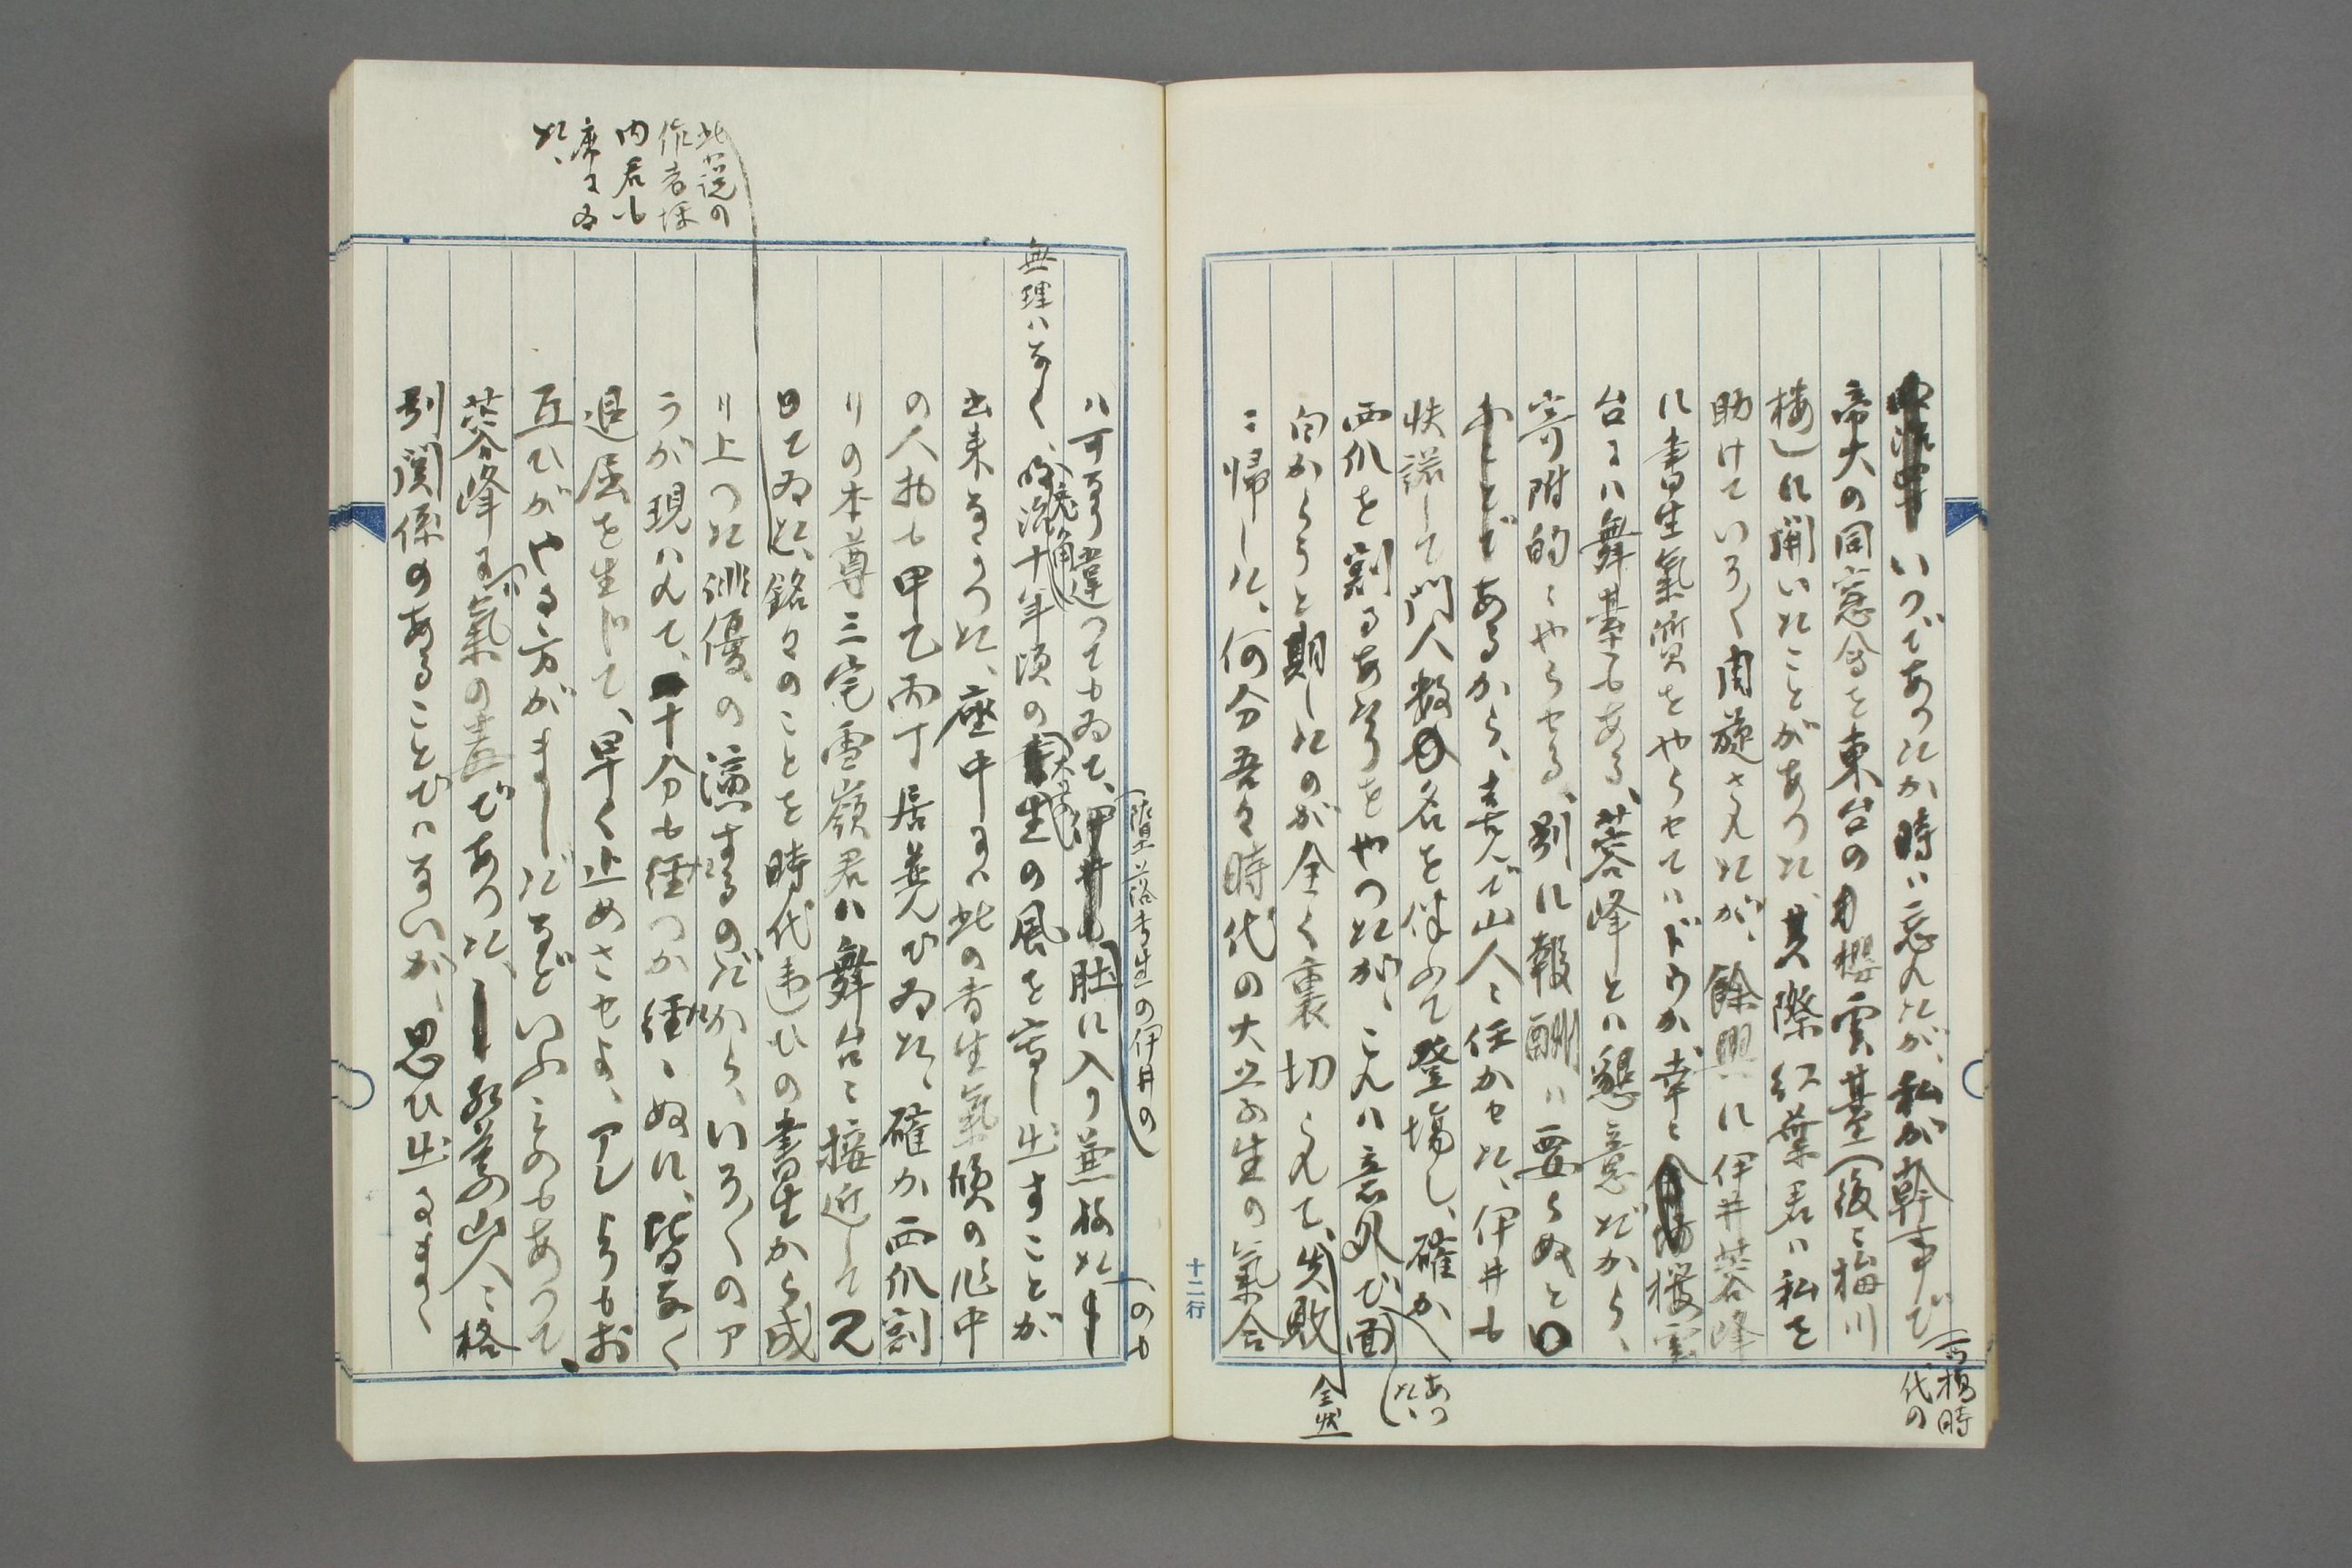 いつであつたか時ハ忘れたが、私が幹事で
(一ツ橋時
代の
帝大の同窓会を東台の桜雲台(後ニ梅川
楼)に開いたことがあつた、其際紅葉君ハ私を
助けていろ〱周旋されたが、餘興に伊井蓉峰
に書生気質をやらせてハドウか、幸に桜雲
台にハ舞台もある、蓉峰とハ懇意だから、
寄附的にやらせる、別に報酬ハ要らぬと口
あるから、喜んで山人ニ任かせた、伊井も
快諾して門人数名を伴ふて登場し、確か
あつ
た、
西瓜を割るあたりをやつたが、これハ意外で面
白からうと期したのが全く裏切られて、失敗
全然
ニ帰した、何分吾々時代の大学生の気合
十二行
ハ可なり違つてもゐて、
(堕落書生の伊井の
(のも
肚に入り兼ねた
無理ハなく、明治十年頃の大学生の風を寫し出すことが
出来なかつた、座中にハ此の書生気質の作中
の人物も甲乙丙丁居並んでゐた、確か西瓜割
りの本尊三宅雪嶺君ハ舞台ニ接近して見
てゐた、銘々のことを時代違ひの書生から成
此小説の
作者坪
内君も
席にゐ
た、
り上つた俳優の演するのだから、いろ〱のア
ラが現ハれて、十分も経つか経たぬに、皆なく
退屈を生じて、早く止めさせよ、アレよりもお
互ひがやる方がましだなどいふものもあつて、
蓉峰に気の毒であつた、紅葉山人ニ格
別関係のあることでハないが、思ひ出るまゝ